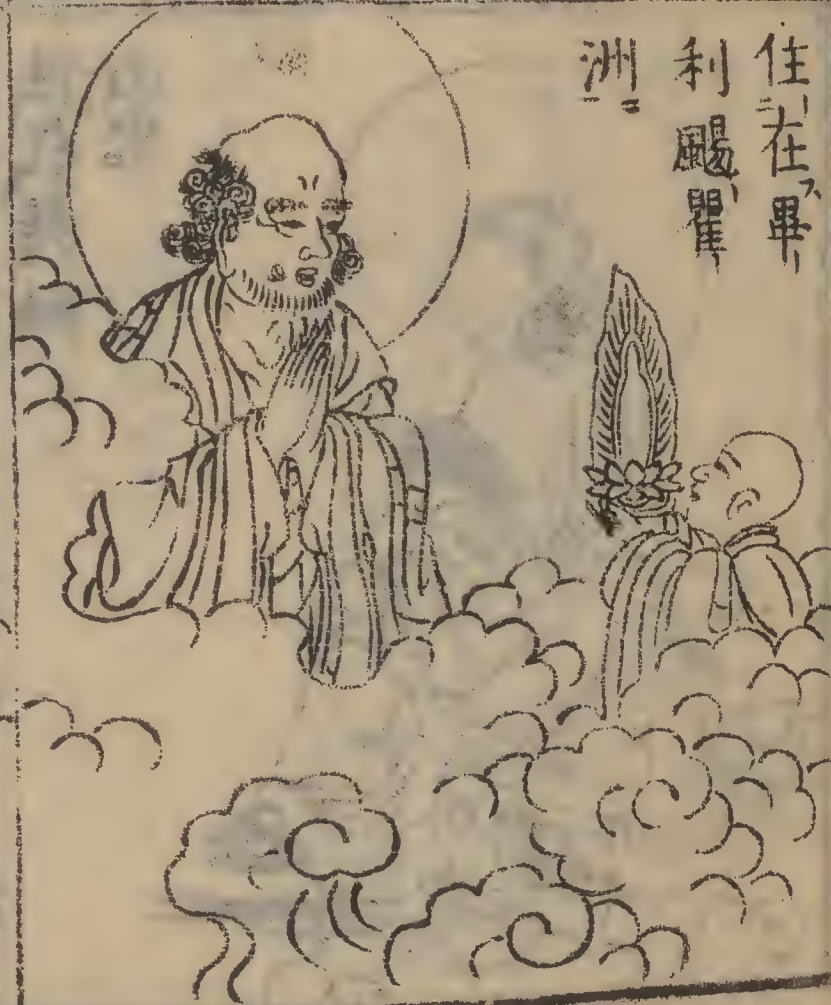 住在畢
利颺瞿
洲